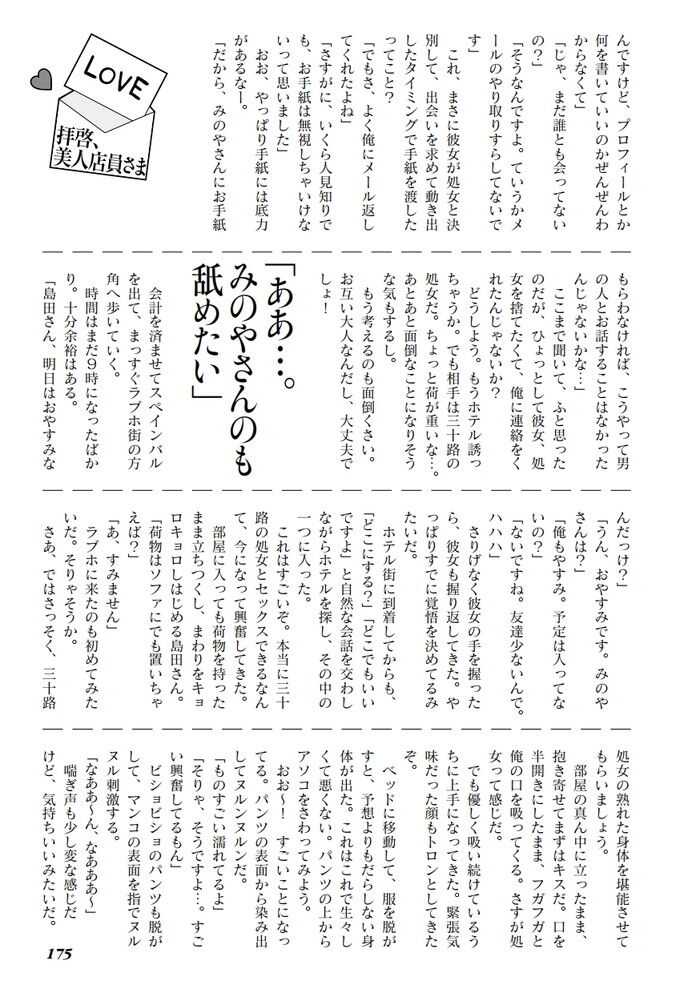 LOVE
拝啓、
美人店員さま
んですけど、プロフィールとか
何を書いていいのかぜんぜんわ
からなくて」
「じゃ、まだ誰とも会ってない
の？」
「そうなんですよ。ていうかメ
ールのやり取りすらしてないで
す」
これ、まさに彼女が処女と決
別して、出会いを求めて動き出
したタイミングで手紙を渡した
ってこと？
「でもさ、よく俺にメール返し
てくれたよね」
「さすがに、いくら人見知りで
も、お手紙は無視しちゃいけな
いって思いました」
おお、やっぱり手紙には底力
があるなー。
「だから、みのやさんにお手紙
もらわなければ、こうやって男
の人とお話することはなかった
んじゃないかな…」
ここまで聞いて、ふと思った
のだが、ひょっとして彼女、処
女を捨てたくて、俺に連絡をく
れたんじゃないか？
どうしよう。もうホテル誘っ
ちゃうか。でも相手は三十路の
処女だ。ちょっと荷が重いな…。
あとあと面倒なことになりそう
な気もするし。
もう考えるのも面倒くさい。
お互い大人なんだし、大丈夫で
しょ！
「ああ…。
みのやさんのも
舐めたい」
会計を済ませてスペインバル
を出て、まっすぐラブホ街の方
角へ歩いていく。
時間はまだ９時になったばか
り。十分余裕はある。
「島田さん、明日はおやすみな
んだっけ？」
「うん、おやすみです。みのや
さんは？」
「俺もやすみ。予定は入ってな
いの？」
「ないですね。友達少ないんで。
ハハハ」
さりげなく彼女の手を握った
ら、彼女も握り返してきた。や
っぱりすでに覚悟を決めてるみ
たいだ。
ホテル街に到着してからも、
「どこにする？」「どこでもいい
ですよ」と自然な会話を交わし
ながらホテルを探し、その中の
一つに入った。
これはすごいぞ。本当に三十
路の処女とセックスできるなん
て、今になって興奮してきた。
部屋に入っても荷物を持った
まま立ちつくし、まわりをキョ
ロキョロしはじめる島田さん。
「荷物はソファにでも置いちゃ
えば？」
「あ、すみません」
ラブホに来たのも初めてみた
いだ。そりゃそうか。
さあ、ではさっそく、三十路
処女の熟れた身体を堪能させて
もらいましょう。
部屋の真ん中に立ったまま、
抱き寄せてまずはキスだ。口を
半開きにしたまま、フガフガと
俺の口を吸ってくる。さすが処
女って感じだ。
でも優しく吸い続けているう
ちに上手になってきた。緊張気
味だった顔もトロンとしてきた
ぞ。
ベッドに移動して、服を脱が
すと、予想よりもだらしない身
体が出た。これはこれで生々し
くて悪くない。パンツの上から
アソコをさわってみよう。
おお〜！　すごいことになっ
てる。パンツの表面から染み出
してヌルンヌルンだ。
「ものすごい濡れてるよ」
「そりゃ、そうですよ…。すご
い興奮してるもん」
ビショビショのパンツも脱が
して、マンコの表面を指でヌル
ヌル刺激する。
「なああ〜ん、なあああ〜」
喘ぎ声も少し変な感じだ
けど、気持ちいいみたいだ。
175